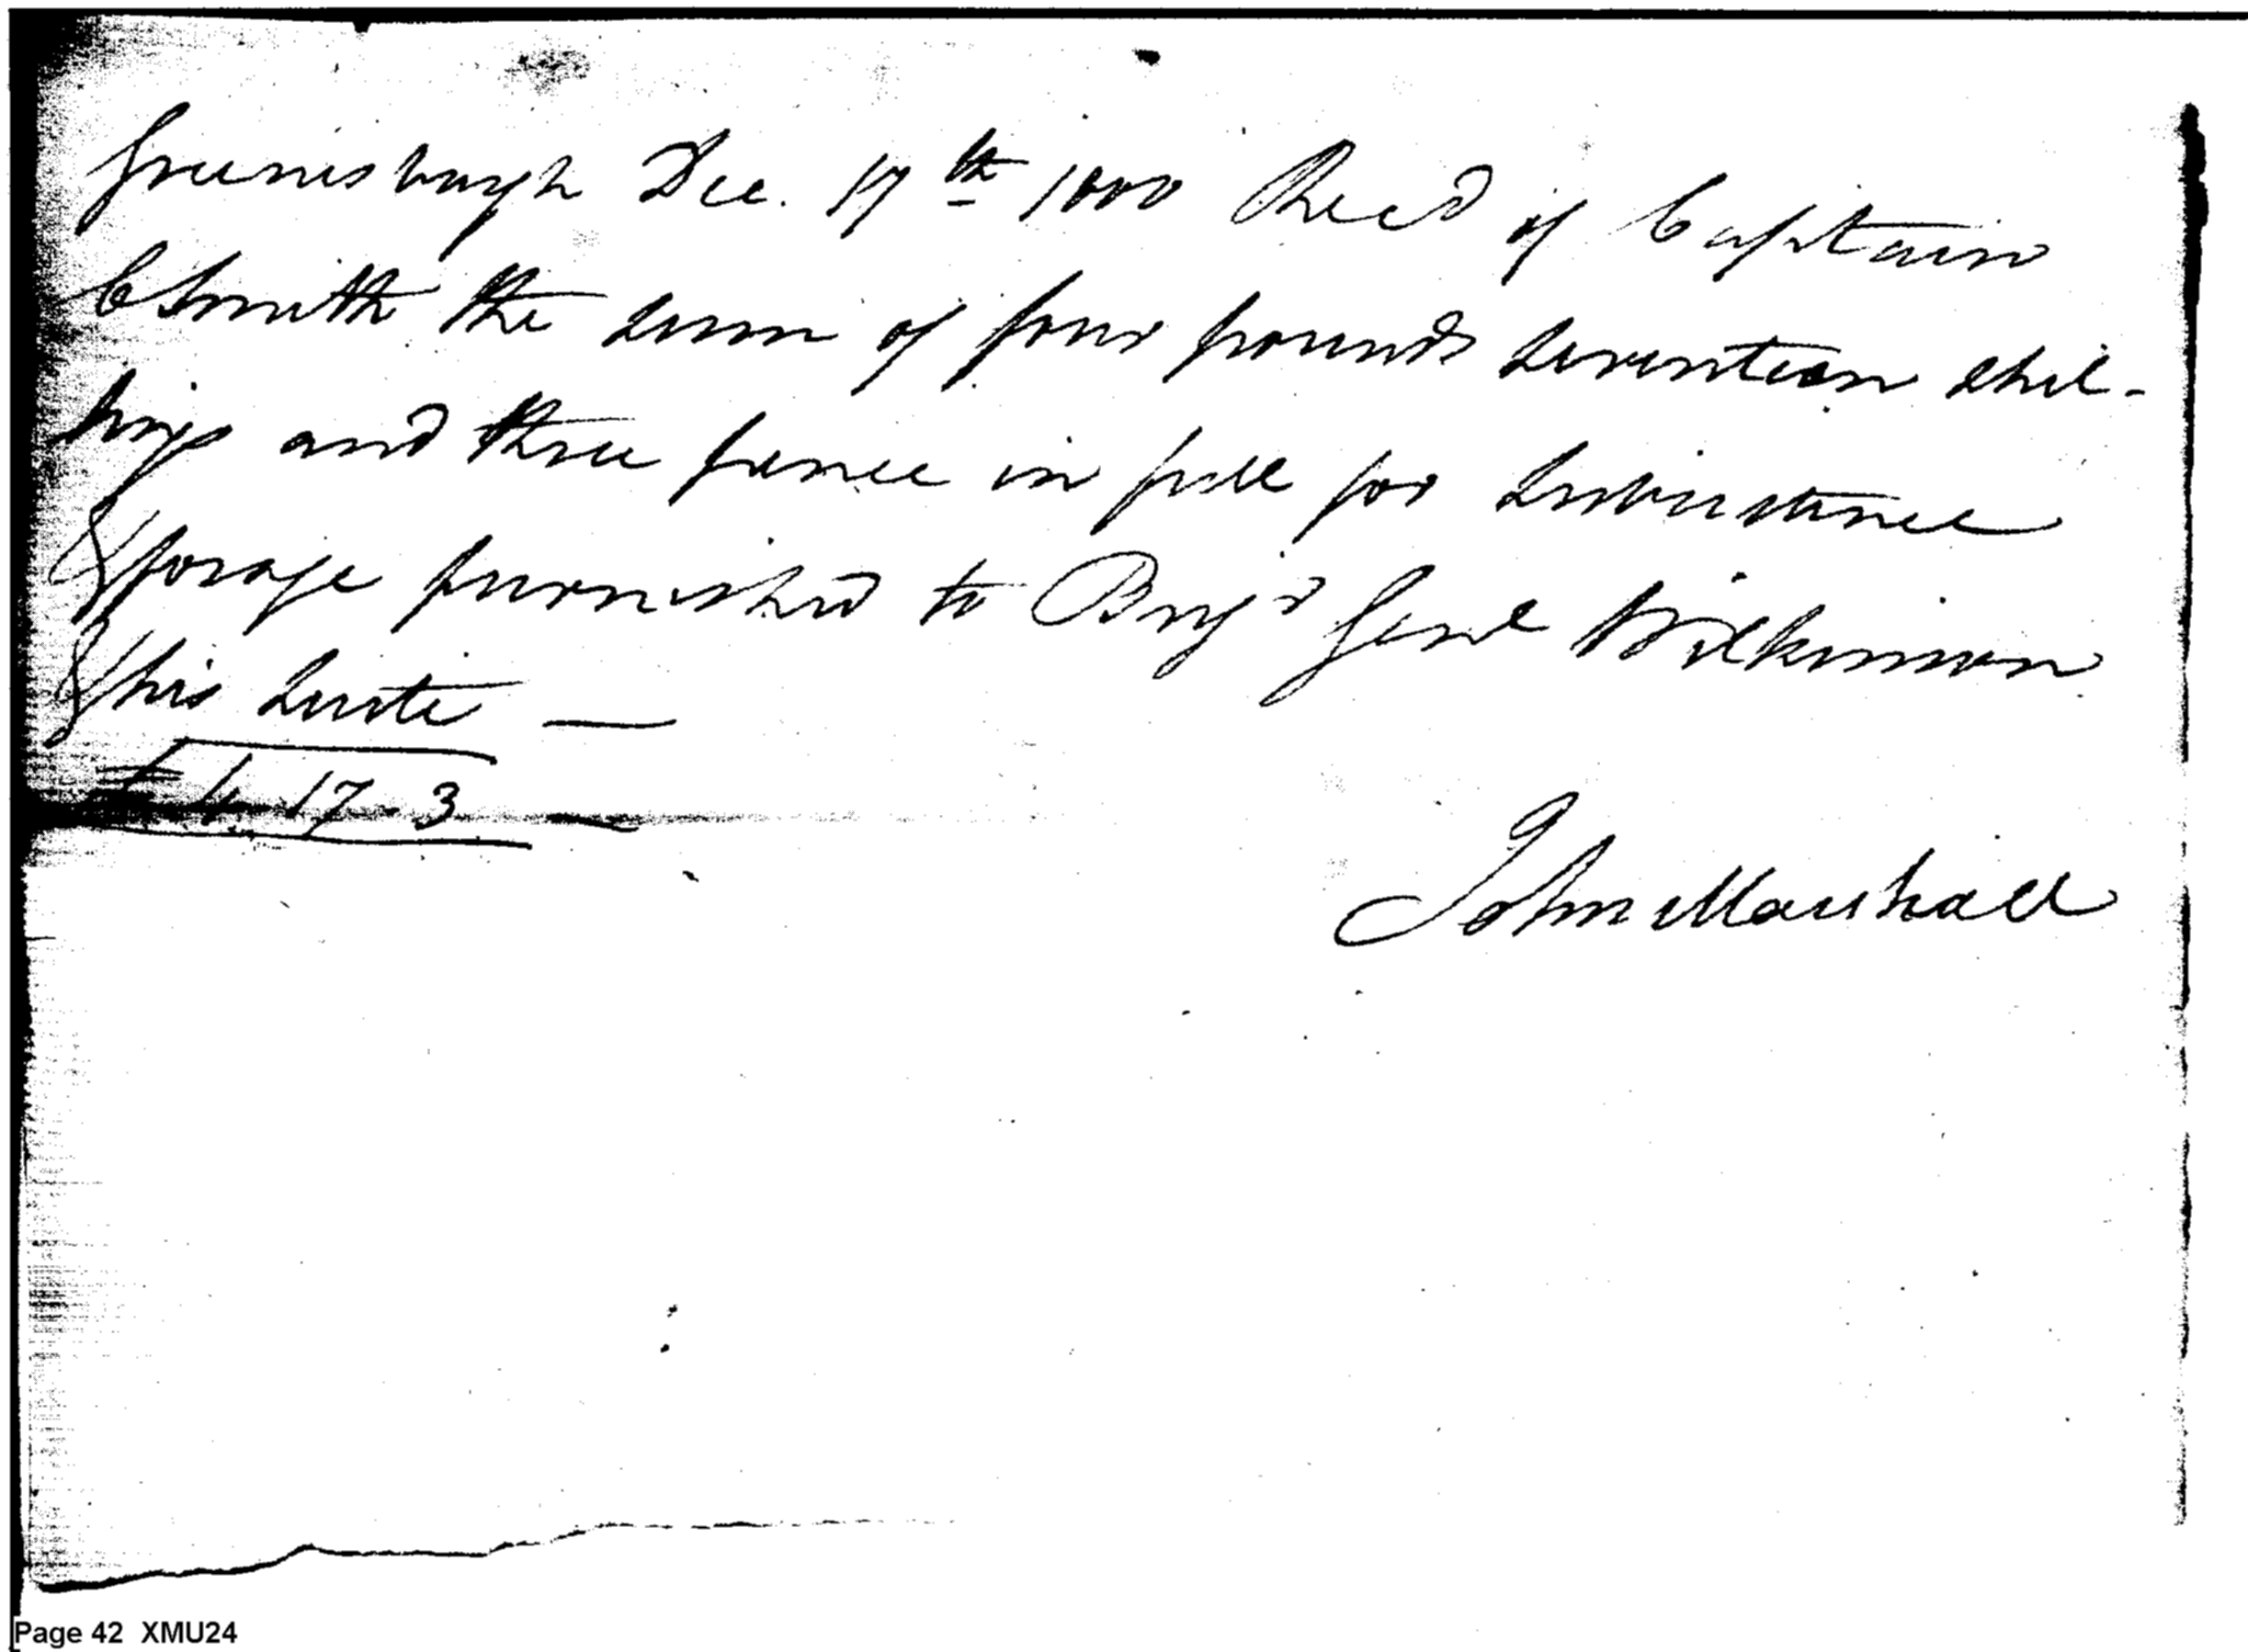 Greensburgh Dec. 17th 1800 Recd of Captain
C Smith the sum of four pounds seventeen shil-
lings and three pence in full for subsistence
& forage furnished to Brigr Genl Wilkinson
& his suite —
£ 4. 17-3 —
John Marshall
Page 42 XMU24